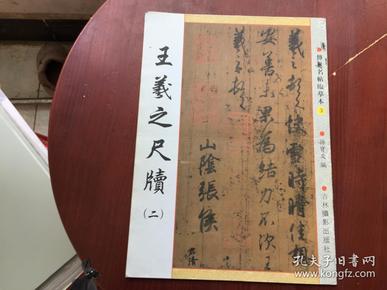 王羲之尺牘
(二)
羲之頓首快雪時晴佳想
安善未果為結力不次王
羲之頓首
山陰張侯
名帖臨摹本
3
孫寶文編
吉林攝影出版社
孔夫子旧书网